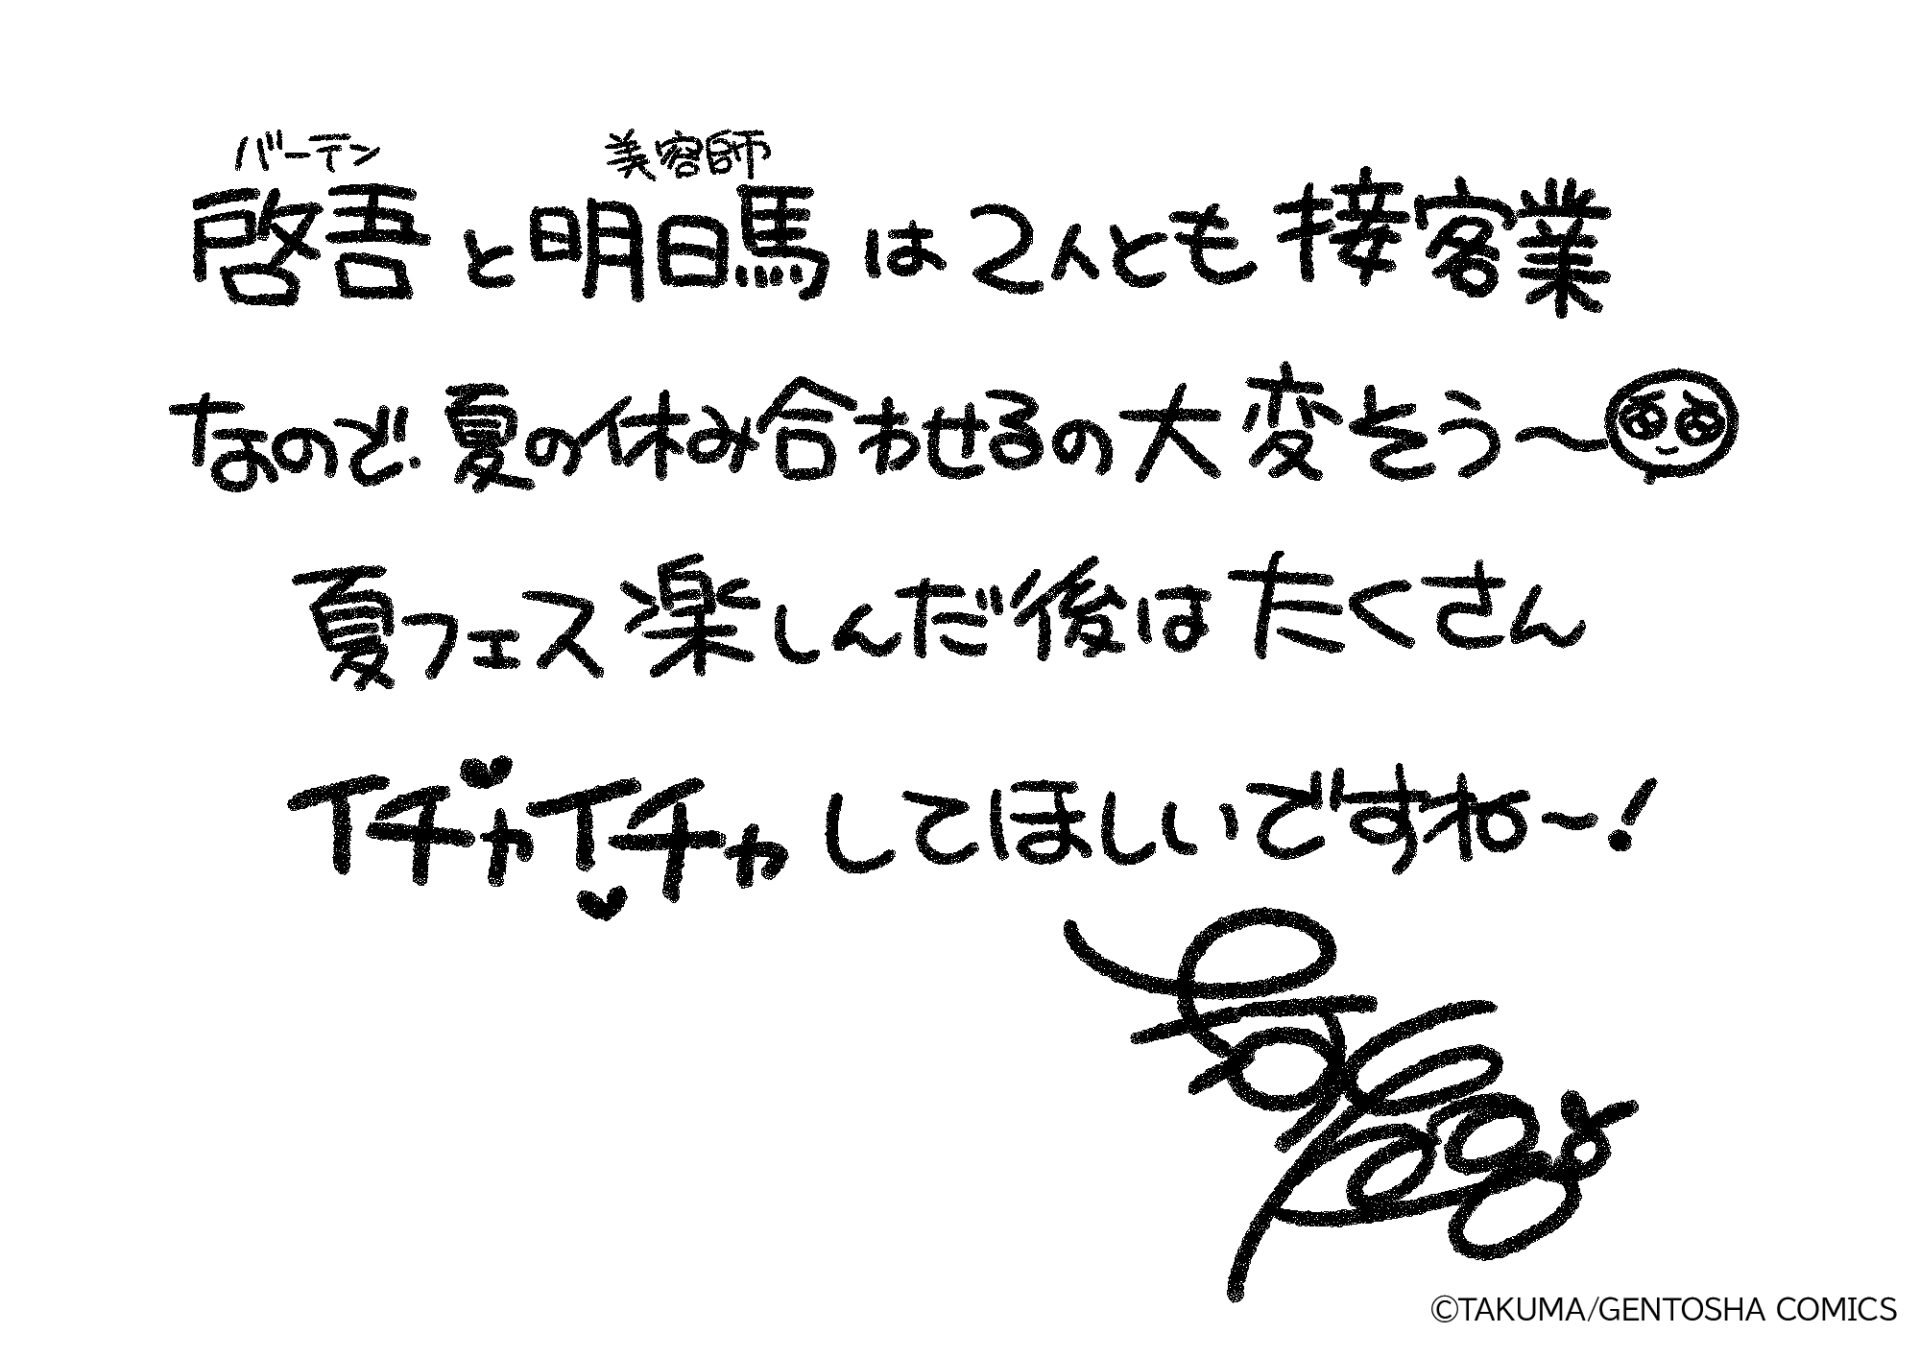 バーテン 美容師
啓吾と明日馬は2人とも接客業
なので.夏の休み合わせるの大変そう〜
夏フェス楽しんだ後はたくさん
イチャイチャしてほしいですね〜!
©TAKUMA/GENTOSHA COMICS